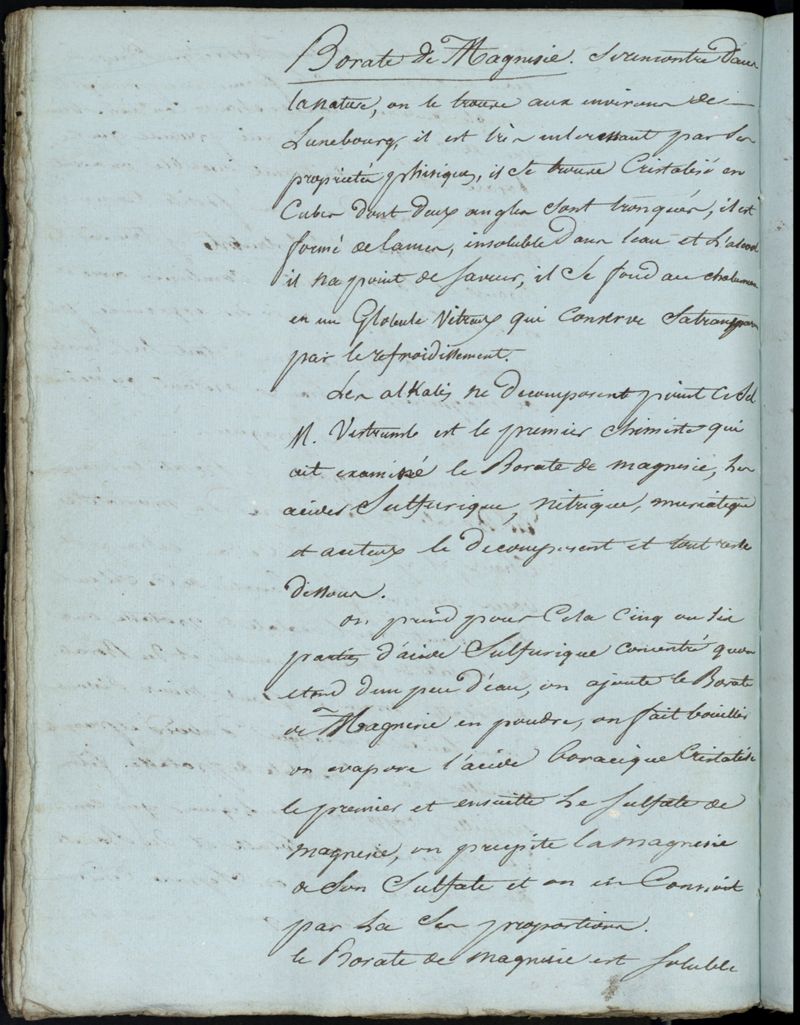 Borate de Magnesie. Se rencontre dans
la nature, on le trouve aux environs de
Lunebourg, il est très interessant par ses
proprietés phisiques, il se trouve Cristalisé en
Cubes dont deux angles sont tronqués, il est
formé de lames, insoluble dans l'eau et l'alcool
il na point de saveur, il se fond au chalumeau
en un Globule Vitreux qui conserve sa transparence
par le refroidissement.
Les alkalis ne decomposent point ce Sel
M. Vestrumb est le premier chimiste qui
ait examiné le Borate de magnesie, les
acides Sulfurique, nitrique, muriatique
et aceteux le decomposent et tout reste
dissous.
on prend pour cela cinq ou six
parties d'acide Sulfurique concentré quon
etend d'un peu d'eau, on ajoute le Borate
de Magnesie en poudre, on fait bouillir
on evapore l'acide boracique Cristalise
le premier et ensuitte le sulfate de
magnesie, on precipite la magnesie
de Son Sulfate et on en Connoit
par la Ses proportions.
le Borate de magnesie est soluble